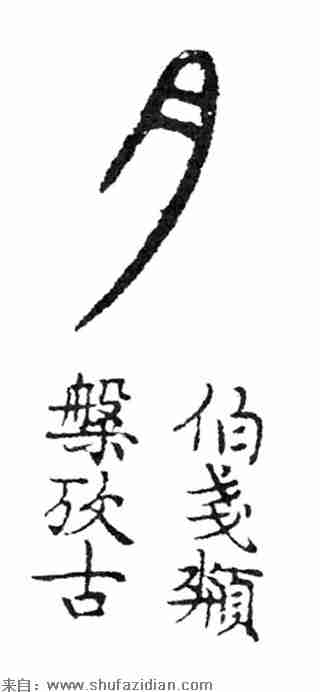 月
伯戔頮
槃攷古
来自：www.shufazidian.com